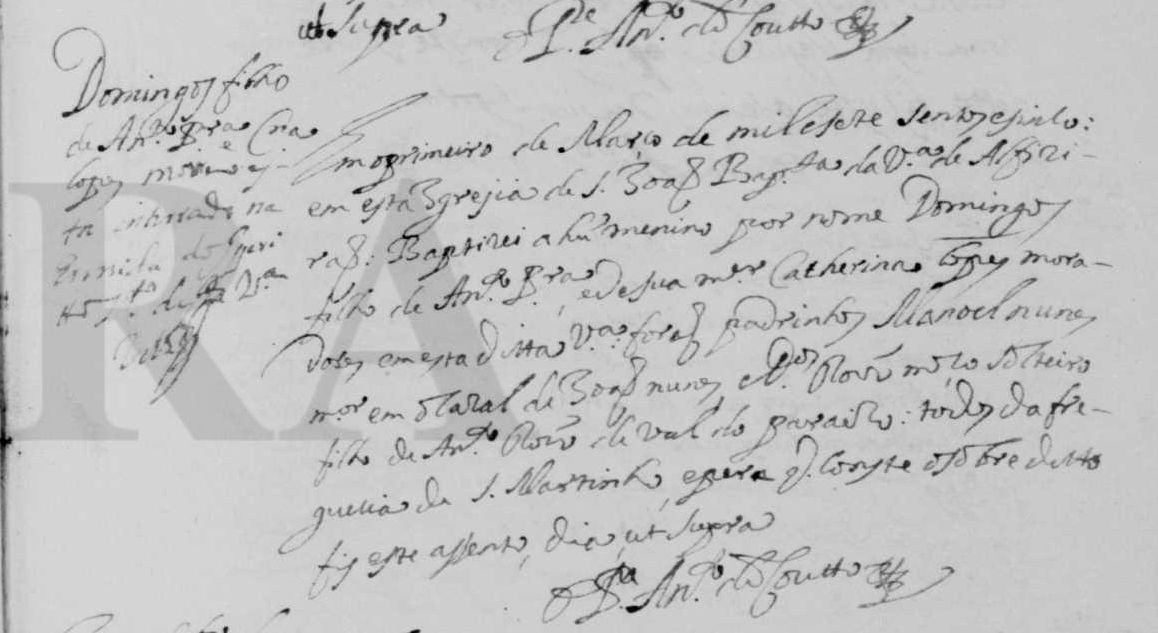 ut supra
O P.e An.to do Coutto
Domingos filho
de An.to P.ra e C.na
lopes
enterrado na
Ermida do Spiri
to S.to desta V.a
Em o primeiro de Março de mil e sete sentos e sinco:
em esta Igrejia de S. Joaõ Bap.ta da V.a de Alfizi-
raõ. Baptizei a hũ menino por nome Domingos
filho de An.to P.ra, e de sua m.er Catherina lopes mora-
dores em esta ditta V.a foraõ padrinhos Manoel nunes
m.or em o Cazal de Joaõ nunes e D.os Roiz̃ m.co solteiro
filho de An.to Roiz̃ de val do paraizo: todos da fre-
guezia de S. Martinho, e pera q̃ conste o sobreditto
fis este assento, dia, ut supra
O P.e An.to do Coutto
RA